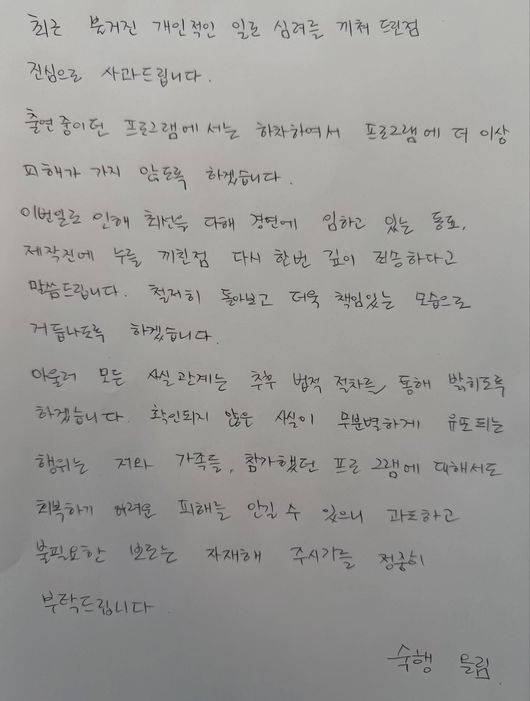 최근 불거진 개인적인 일로 심려를 끼쳐 드린점
진심으로 사과드립니다.
출연 중이던 프로그램에서는 하차하여서 프로그램에 더 이상
피해가 가지 않도록 하겠습니다.
이번일로 인해 최선을 다해 경연에 임하고 있는 동료,
제작진에 누를 끼친점 다시 한번 깊이 죄송하다고
말씀드립니다. 철저히 돌아보고 더욱 책임있는 모습으로
거듭나도록 하겠습니다.
아울러 모든 사실관계는 추후 법적 절차를 통해 밝히도록
하겠습니다. 확인되지 않은 사실이 무분별하게 유포되는
행위는 저와 가족들, 참가했던 프로그램에 대해서도
회복하기 어려운 피해를 안길 수 있으니 과도하고
불필요한 보도는 자재해 주시기를 정중히
부탁드립니다
수행 드림.